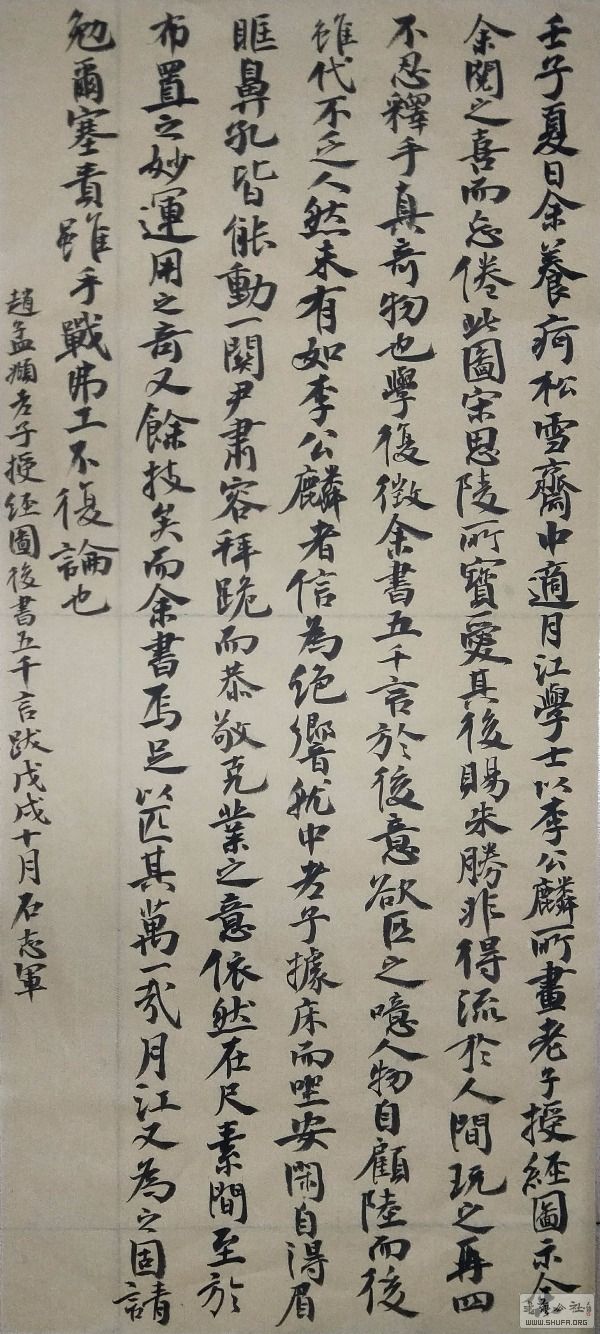 壬子夏日余養疴松雪齋中適月江學士以李公麟所畫老子授經圖示余
余閱之喜而忘倦此圖宋思陵所寶愛其後賜朱勝非得流於人間玩之再四
不忍釋手真奇物也學復徵余書五千言於後意欲匹之噫人物自顧陸而後
雖代不乏人然未有如李公麟者信為絕響就中老子據床而坐安閑自得眉
眶鼻孔皆能動一關尹肅容拜跪而恭敬克業之意依然在尺素間至於
布置之妙運用之奇又餘技矣而余書焉足以匹其萬一哉月江又為之固請
勉爾塞責雖手戰弗工不復論也
趙孟頫老子授經圖後書五千言跋戊戌十月石志軍
WWW.SHUFA.ORG